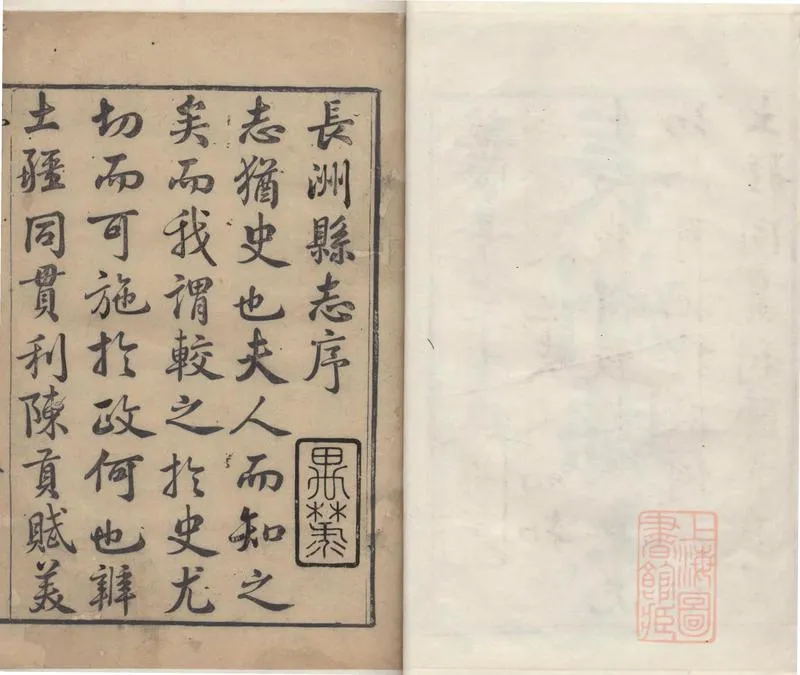 長洲縣志序
志猶史也夫人而知之
矣而我謂較之於史尤
切而可施於政何也辨
土疆同貫利陳貢賦美
上海圖
書館藏